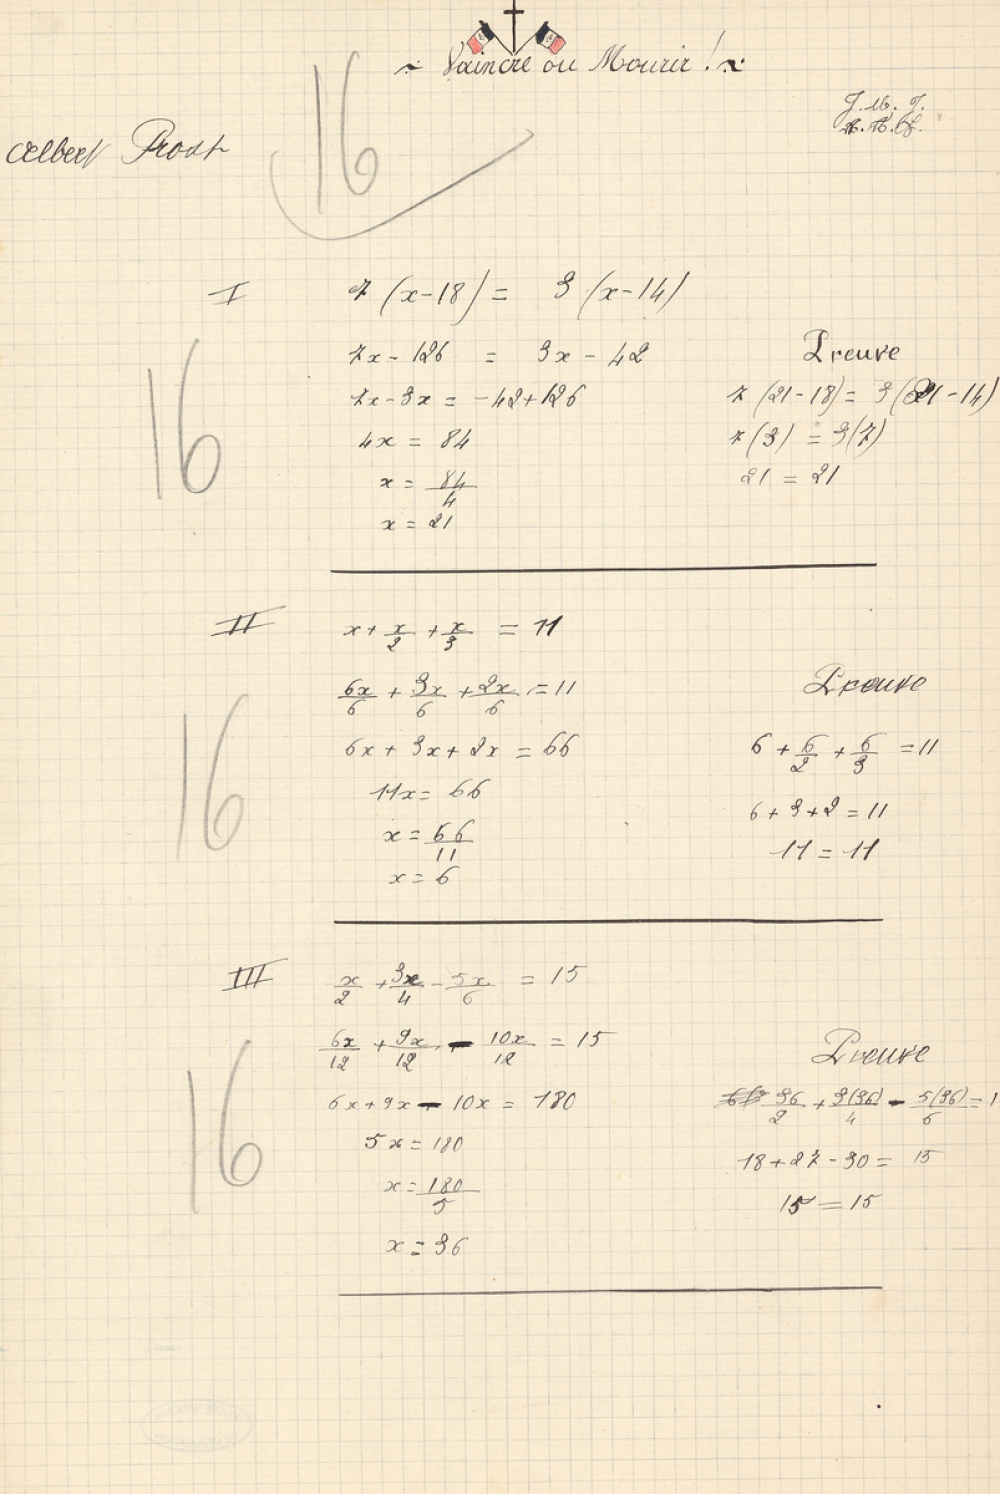 ~ Vaincre ou Mourir ! ~
J. M. J.
Albert Prost
16
I
7 (x-18) = 3 (x-14)
7x - 126 = 3x - 42
7x - 3x = -42 + 126
4x = 84
x = 84/4
x = 21
16
Preuve
7 (21 - 18) = 3 (21 - 14)
7 (3) = 3(7)
21 = 21
II
x + x/2 + x/3 = 11
6x/6 + 3x/6 + 2x/6 = 11
6x + 3x + 2x = 66
11x = 66
x = 66/11
x = 6
16
Preuve
6 + 6/2 + 6/3 = 11
6 + 3 + 2 = 11
11 = 11
III
x/2 + 3x/4 - 5x/6 = 15
6x/12 + 9x/12 - 10x/12 = 15
6x + 9x - 10x = 180
5x = 180
x = 180/5
x = 36
16
Preuve
36/2 + 3(36)/4 - 5(36)/6 = 1
18 + 27 - 30 = 15
15 = 15